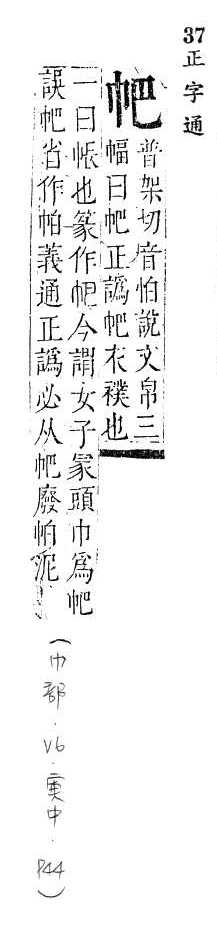 37正字通
帊
普架切音怕說文帛三
幅曰帊正譌帊衣襆也
一曰帳也篆作帊今謂女子冡頭巾爲帊
誤帊省作帕義通正譌必从帊廢帕泥
(巾部.V6.寅中.P44)